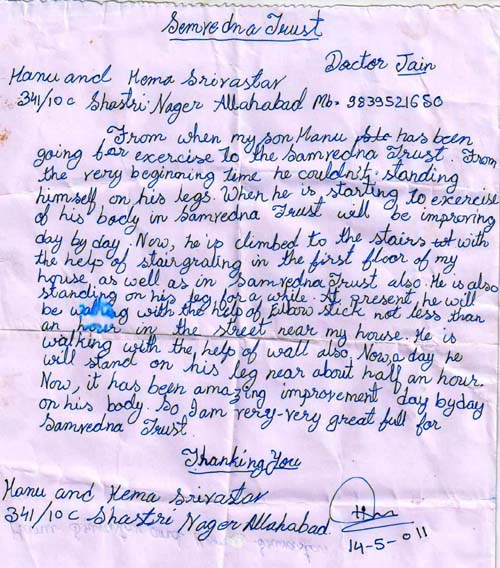 Semvedna Trust
Doctor Jain
Manu and Hema Srivastav
341/10C Shastri Nager Allahabad Mb. 9839521680
From when my son Manu has been
going for exercise to the Samvedna Trust. From
the very beginning time he couldn't standing
himself on his legs. When he is starting to exercise
of his body in Samvedna Trust will be improving
day by day. Now, he is climbed to the stairs with
the help of stairgrating in the first floor of my
house as well as in Samvedna Trust also. He is also
standing on his leg for a while. At present, he will
be walking with the help of Elbow stick not less than
an hour in the street near my house. He is
walking with the help of wall also. Now, a day he
will stand on his leg near about half an hour.
Now, it has been amazing improvement day by day
on his body. So, I am very-very great full for
Samvedna Trust.
Thanking You
Manu and Hema Srivastav
341/10C Shastri Nager Allahabad.
14-5-011